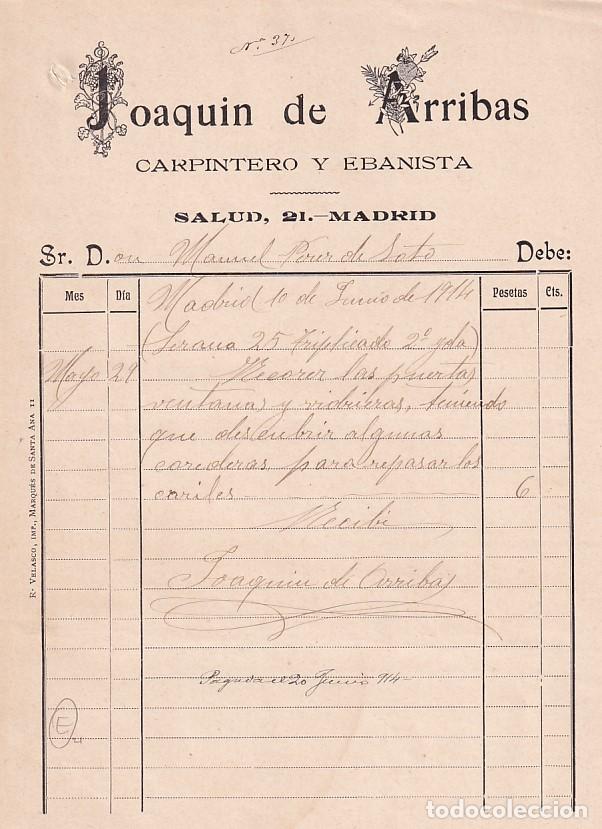 Nº 37
Joaquin de Arribas
CARPINTERO Y EBANISTA
SALUD, 21.—MADRID
Sr. D.on Manuel Perez de Soto Debe:
Mes Día Pesetas Cts.
Madrid 10 de Junio de 1914
(Serano 25 triplicado 2º yda)
Mayo 29 Recorer las puertas
ventanas y vidrieras, teniendo
que descubrir algunas
corederas para repasar los
cariles 6
Recibi
Joaquin de Arribas
Pagada el 20 Junio 914
E
R. VELASCO, IMP., MARQUÉS DE SANTA ANA 11
todocoleccion